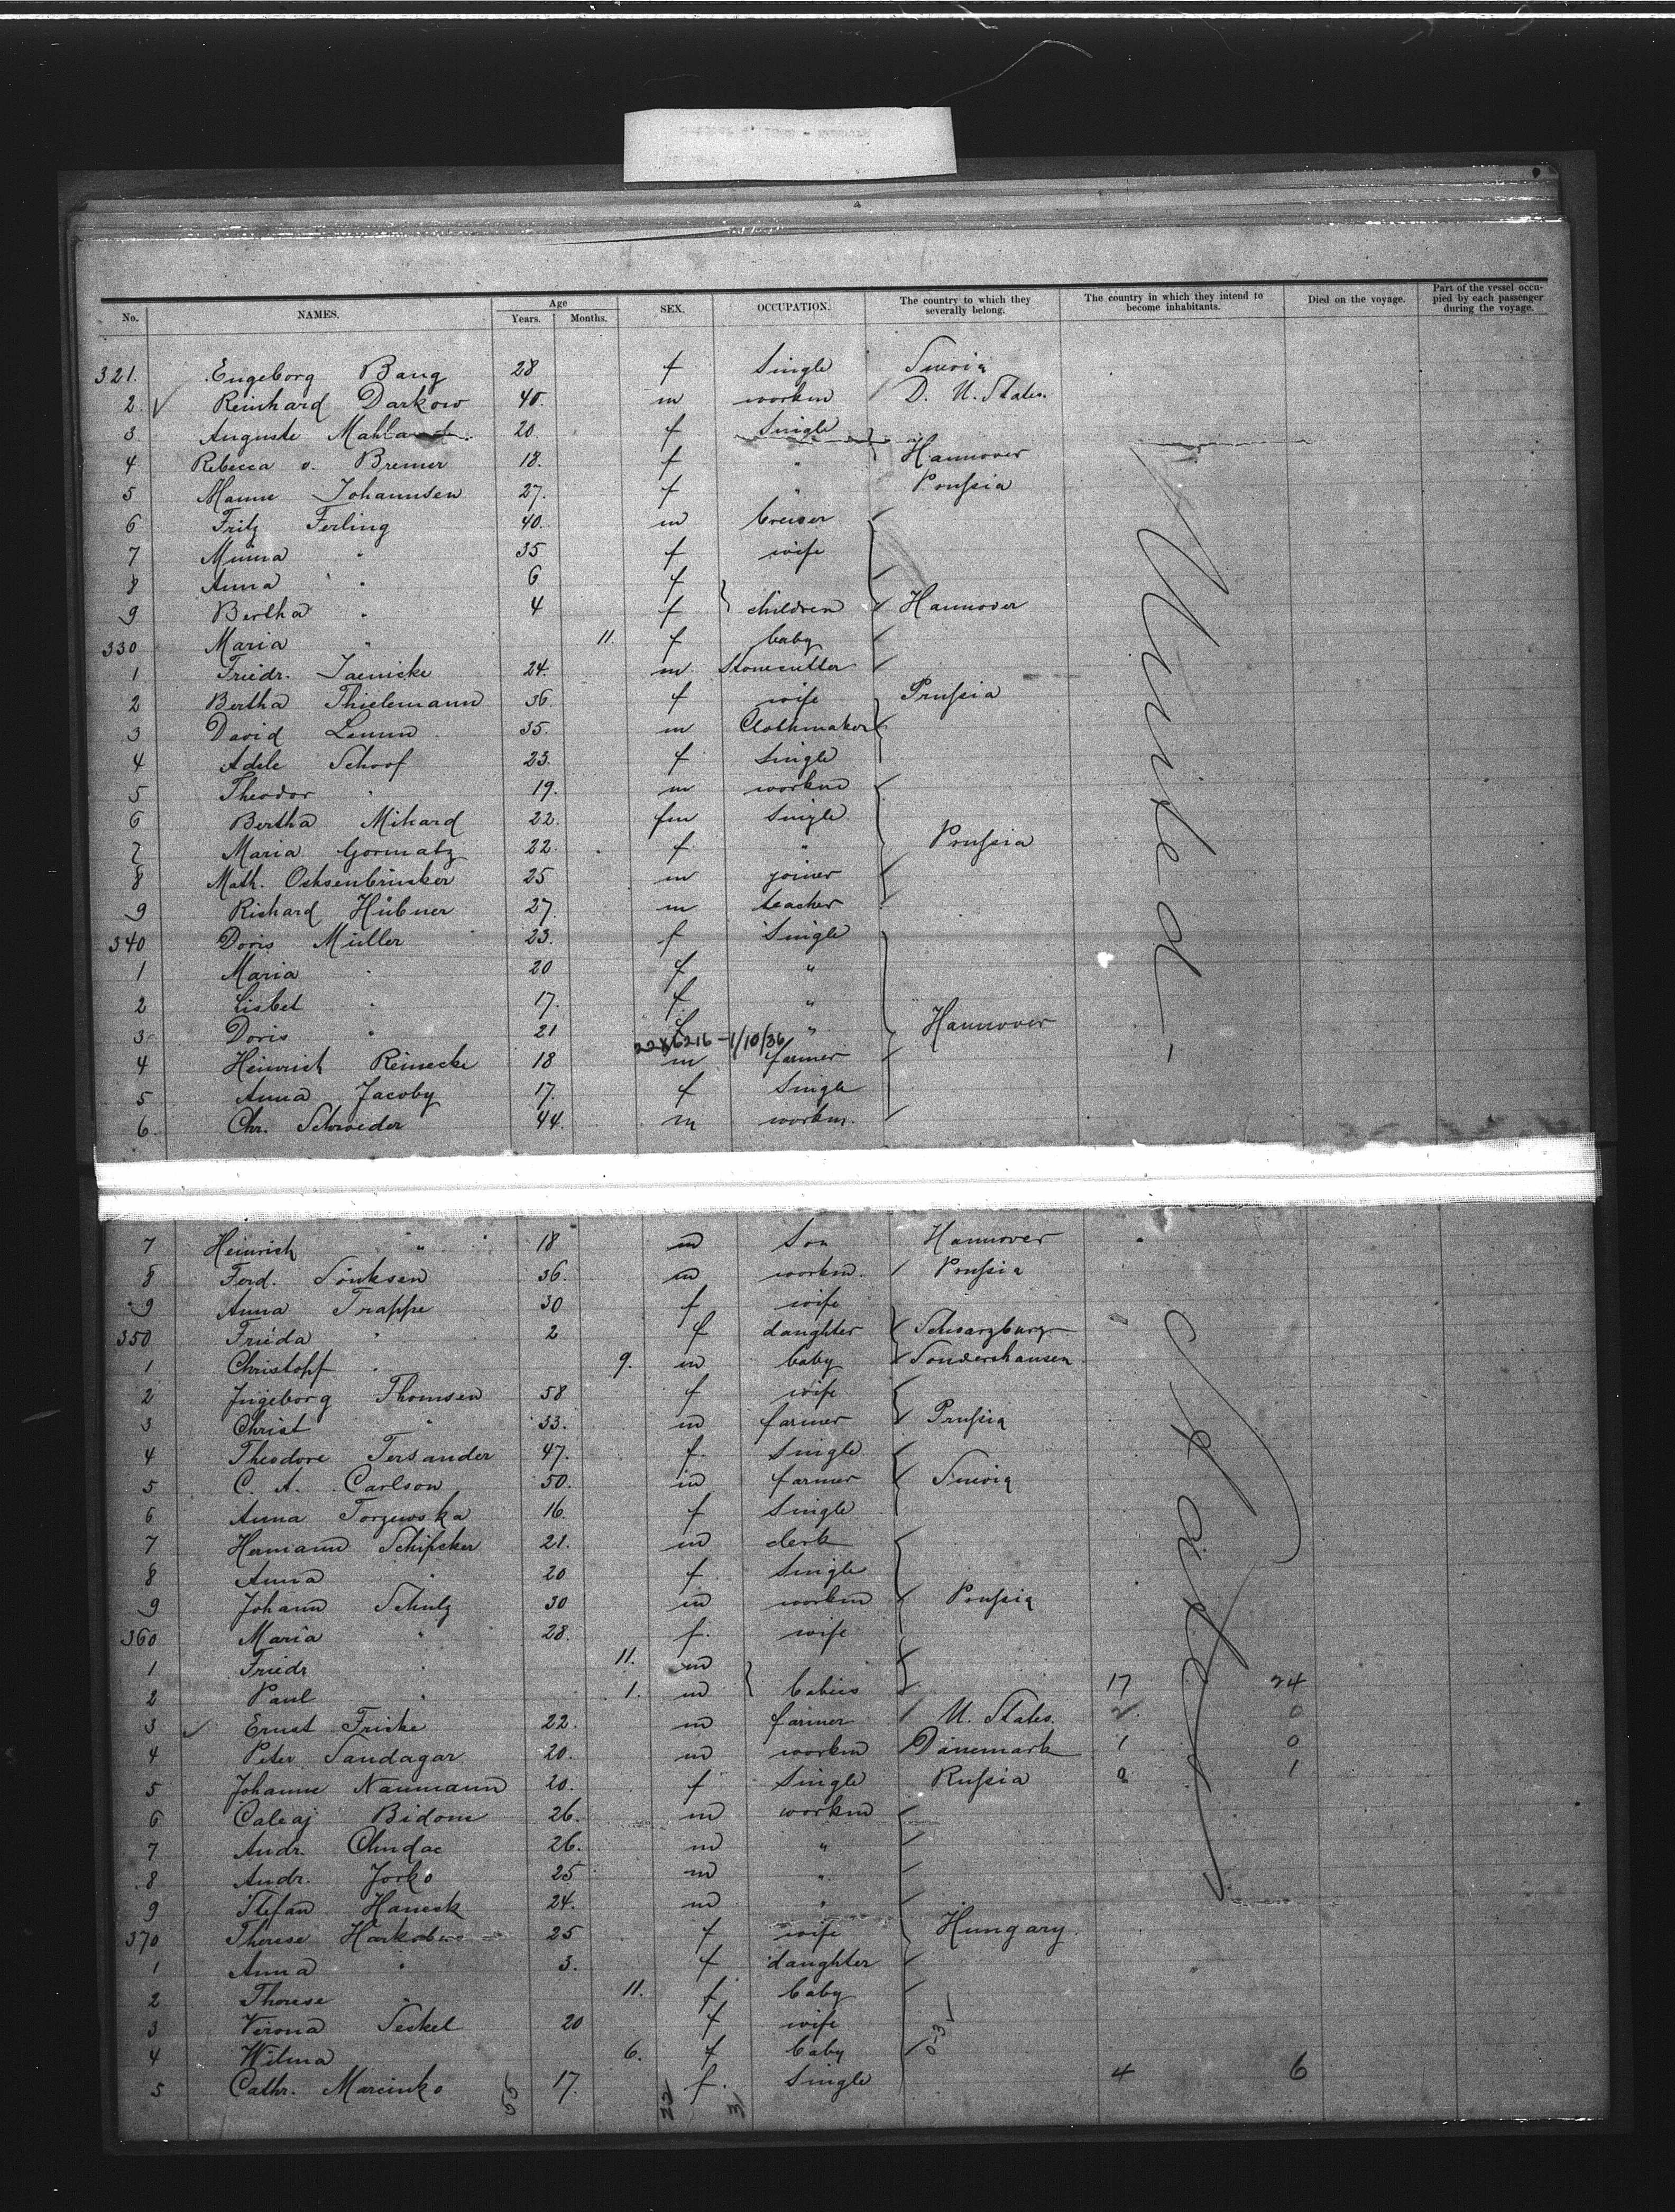 No. NAMES. Age Years. Months. SEX. OCCUPATION. The country to which they severally belong. The country in which they intend to become inhabitants. Died on the voyage. Part of the vessel occupied by each passenger during the voyage.
321. Engeborg Bang 28 f Single
2. Reinhard Darkow 40. m workm D. U. States.
3 Auguste 20. f Single
4 Rebecca v. Bremer 18. f " Hannover
5 Johannsen 27. f " Prussia
6 Fritz Ferling 40. m
7 Minna " 35 f wife
8 Anna " 6 f
9 Bertha " 4 f children Hannover
330 Maria " 11. f baby
1 Friedr. Jaenicke 24. m Stonecutter
2 Bertha Thielemann 36. f wife Prussia
3 David 35. m Clothmaker
4 Adele Schoof 23. f Single
5 Theodor " 19. m workm
6 Bertha Mikard 22. fm Single
7 Maria Gormatz 22. f " Prussia
8 Math. Ochsenbrinker 25 m joiner
9 Richard Hübner 27. m teacher
340 Doris Müller 23. f Single
1 Maria " 20 f "
2 Lisbet " 17. f "
3 Doris " 21 f " Hannover
1/10/36
4 Heinrich Reinecke 18 m farmer
5 Anna Jacoby 17. f Single
6. Chr. Schroeder 44. m workm.
United
7 Heinrich " 18 m Son Hannover
8 Ferd. Sönksen 36. m workm. Prussia
9 Anna Trappe 30 f wife
350 Frieda " 2 f daughter Schwarzburg
1 Christopf " 9. m baby Sondershausen
2 Jngeborg Thomsen 58 f wife
3 Christ " 33. m farmer Prussia
4 Theodore Tersander 47. f. Single
5 C. A. Carlson 50. m farmer
6 Anna Torzewska 16. f Single
7 Hermann 21. m clerk
8 Anna " 20 f Single
9 Johann Schulz 30 m workm Prussia
360 Maria " 28. f. wife
1 Friedr " 11. m
2 Paul " 1. m babies 17 24
3 Ernst Fricke 22. m farmer U. States. 2 0
4 Peter Sandagar 20. m workm Dänemark 1 0
5 Johanne Naumann 20. f Single Russia 0 1
6 Calcaj Bidom 26. m workm
7 Andr. Chudac 26. m "
8 Andr. Jorko 25 m "
9 Stefan Haneck 24. m "
370 Therese 25 f wife Hungary.
1 Anna " 3. f daughter
2 Therese " 11. f baby
3 Verona Seckel 20 f wife
4 Wilma 6. f baby
5 Cathr. Marcinko 17. f. Single 4 6
States
55 22 31